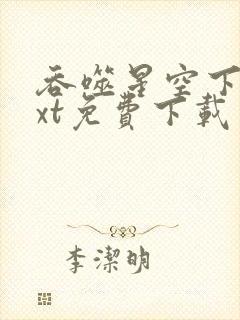 吞噬星空下
xt免費下載
李潔明